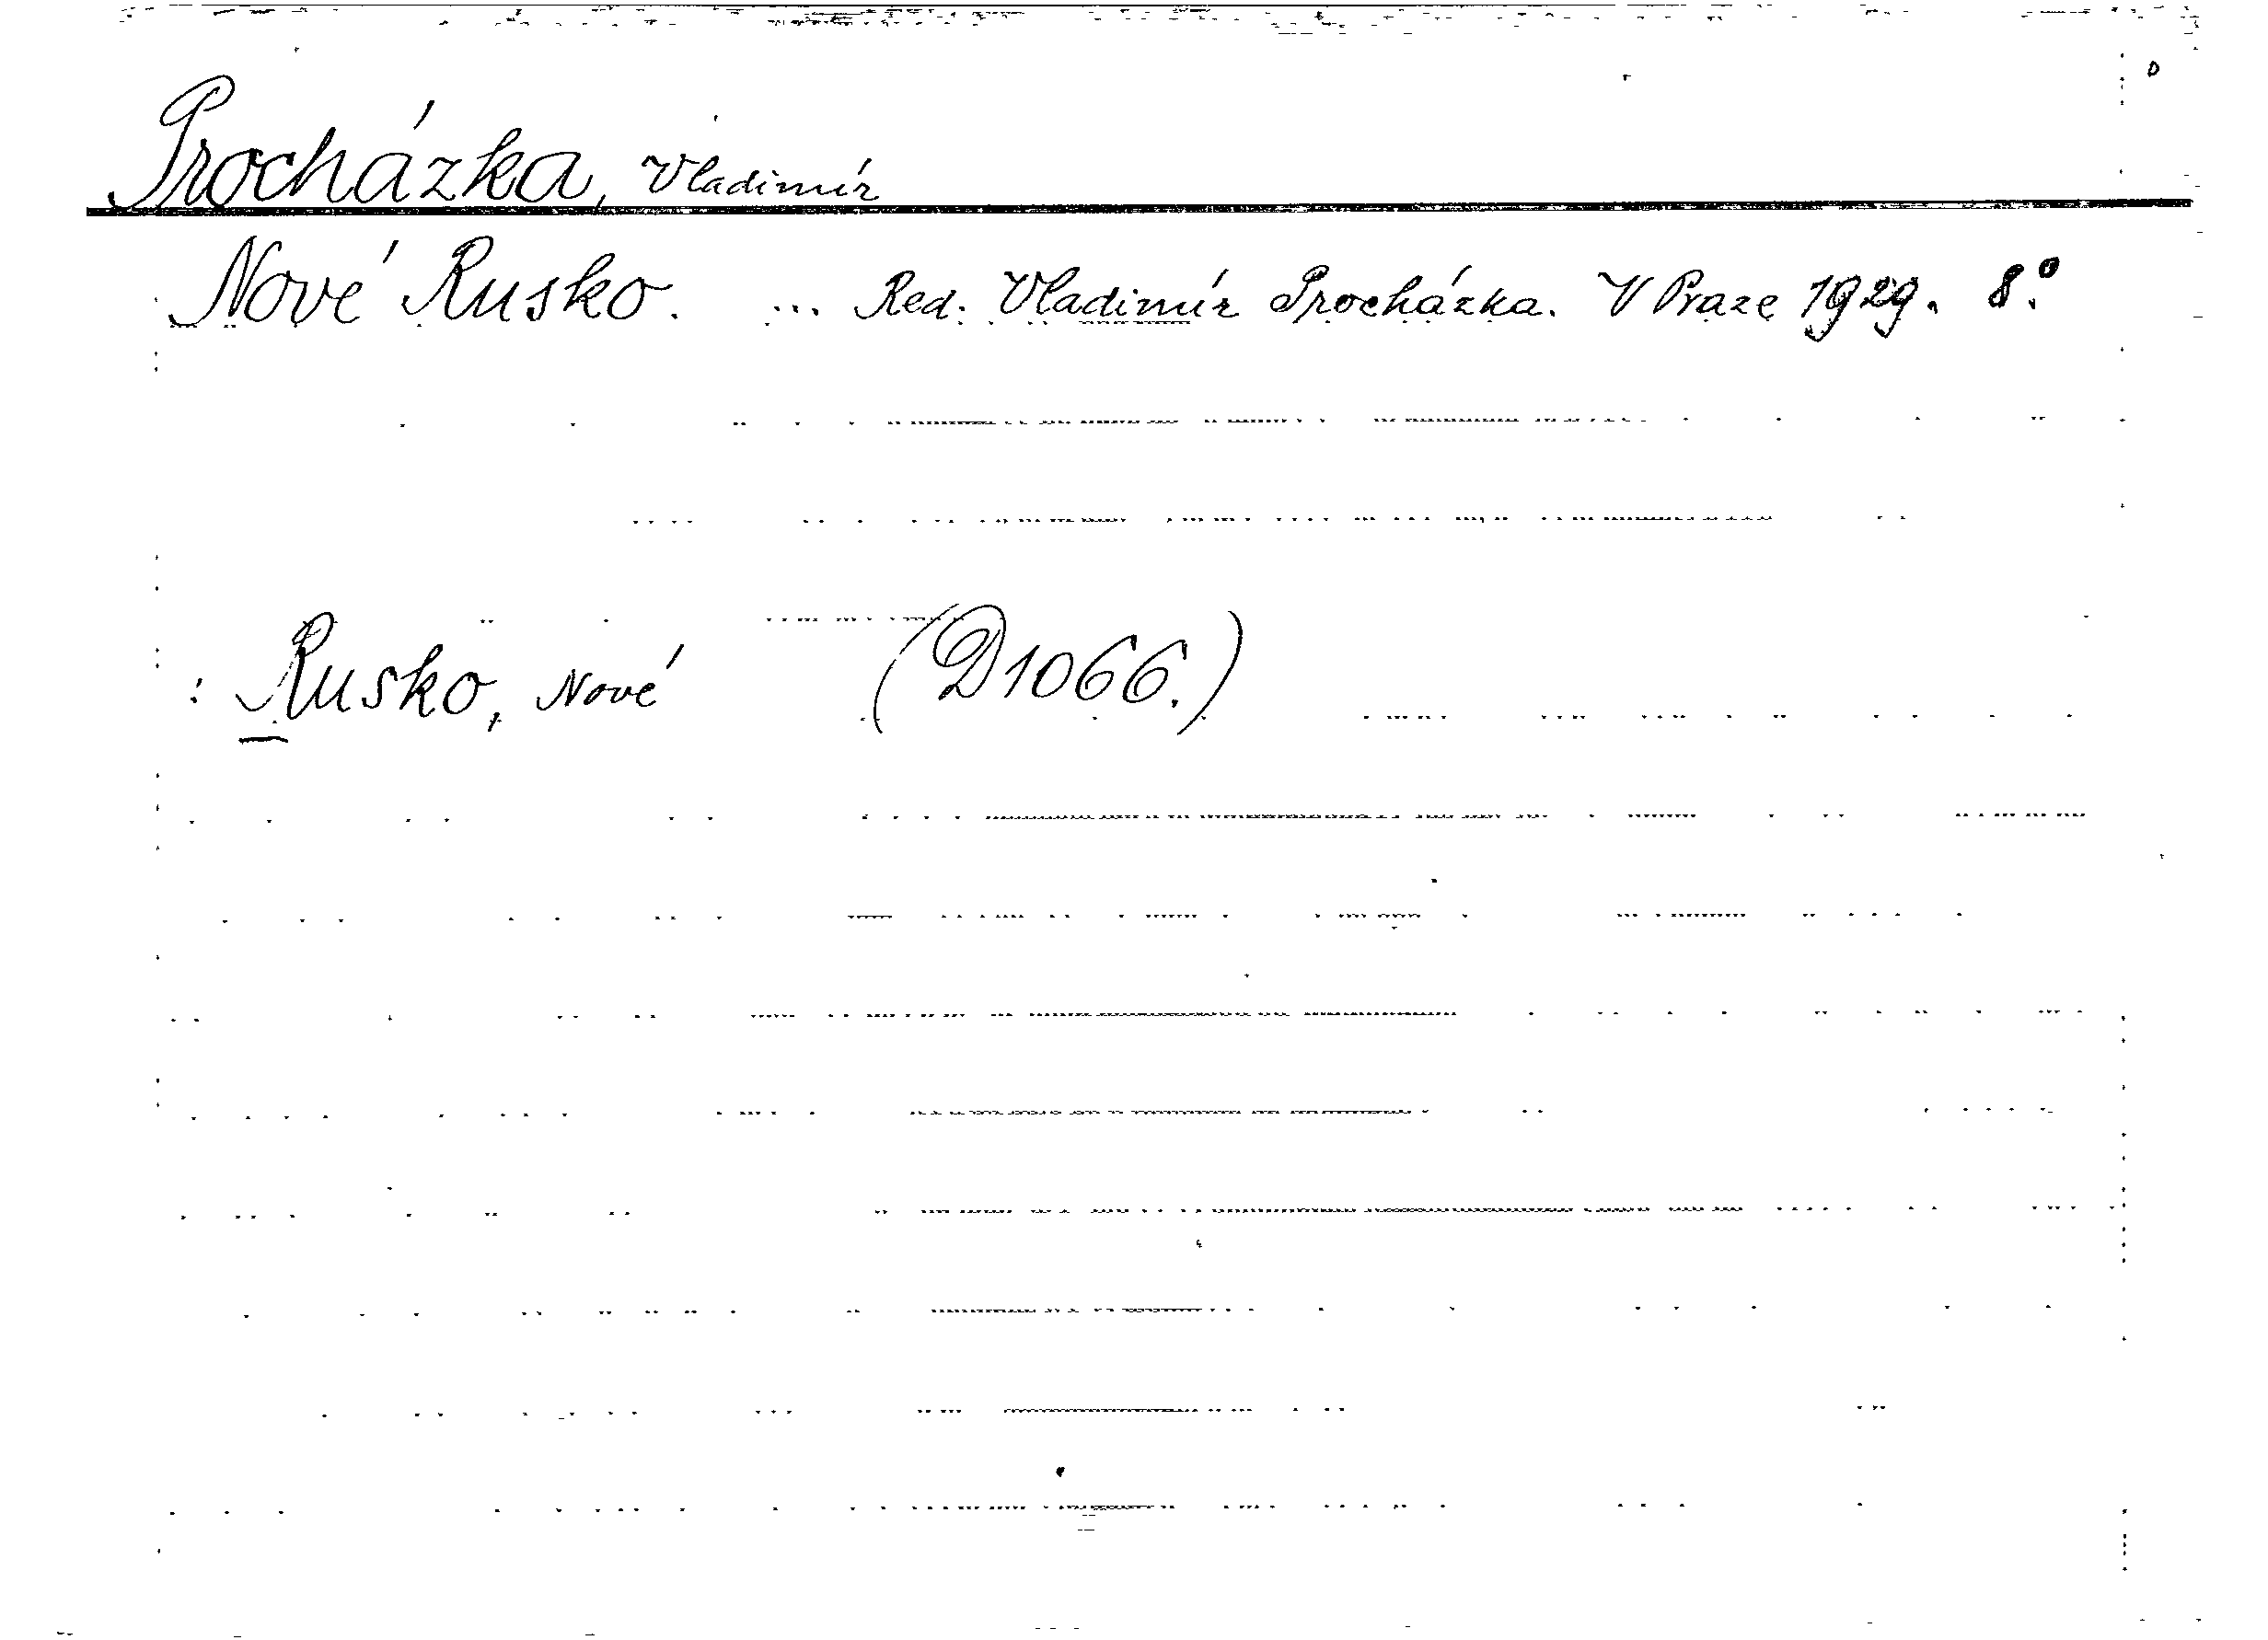 Procházka, Vladimír
Nové Rusko. ... Red. Vladimír Procházka. V Praze 1929. 8.º
: Rusko, Nové (D1066.)